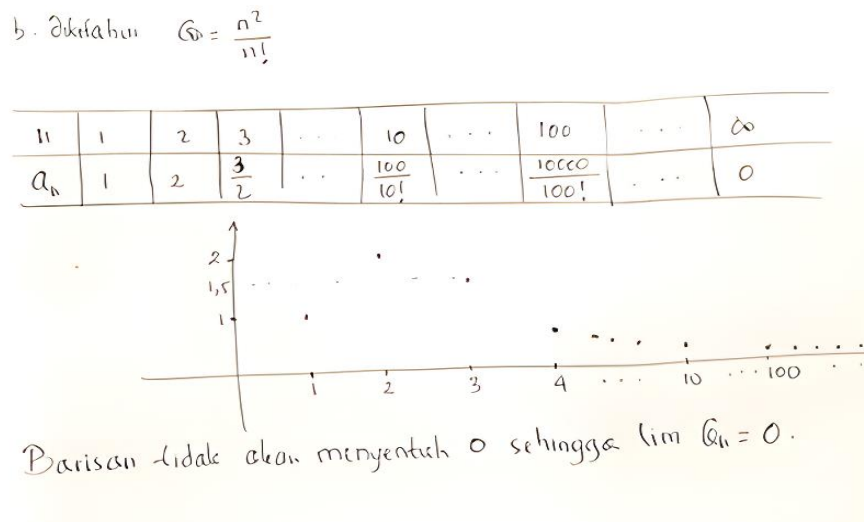 b. Diketahui an = n²/n!
n 1 2 3 ... 10 ... 100 ... ∞
an 1 2 3/2 ... 100/10! ... 10000/100! ... 0
2
1,5
1
1 2 3 4 ... 10 ... 100
Barisan tidak akan menyentuh 0 sehingga lim an = 0.